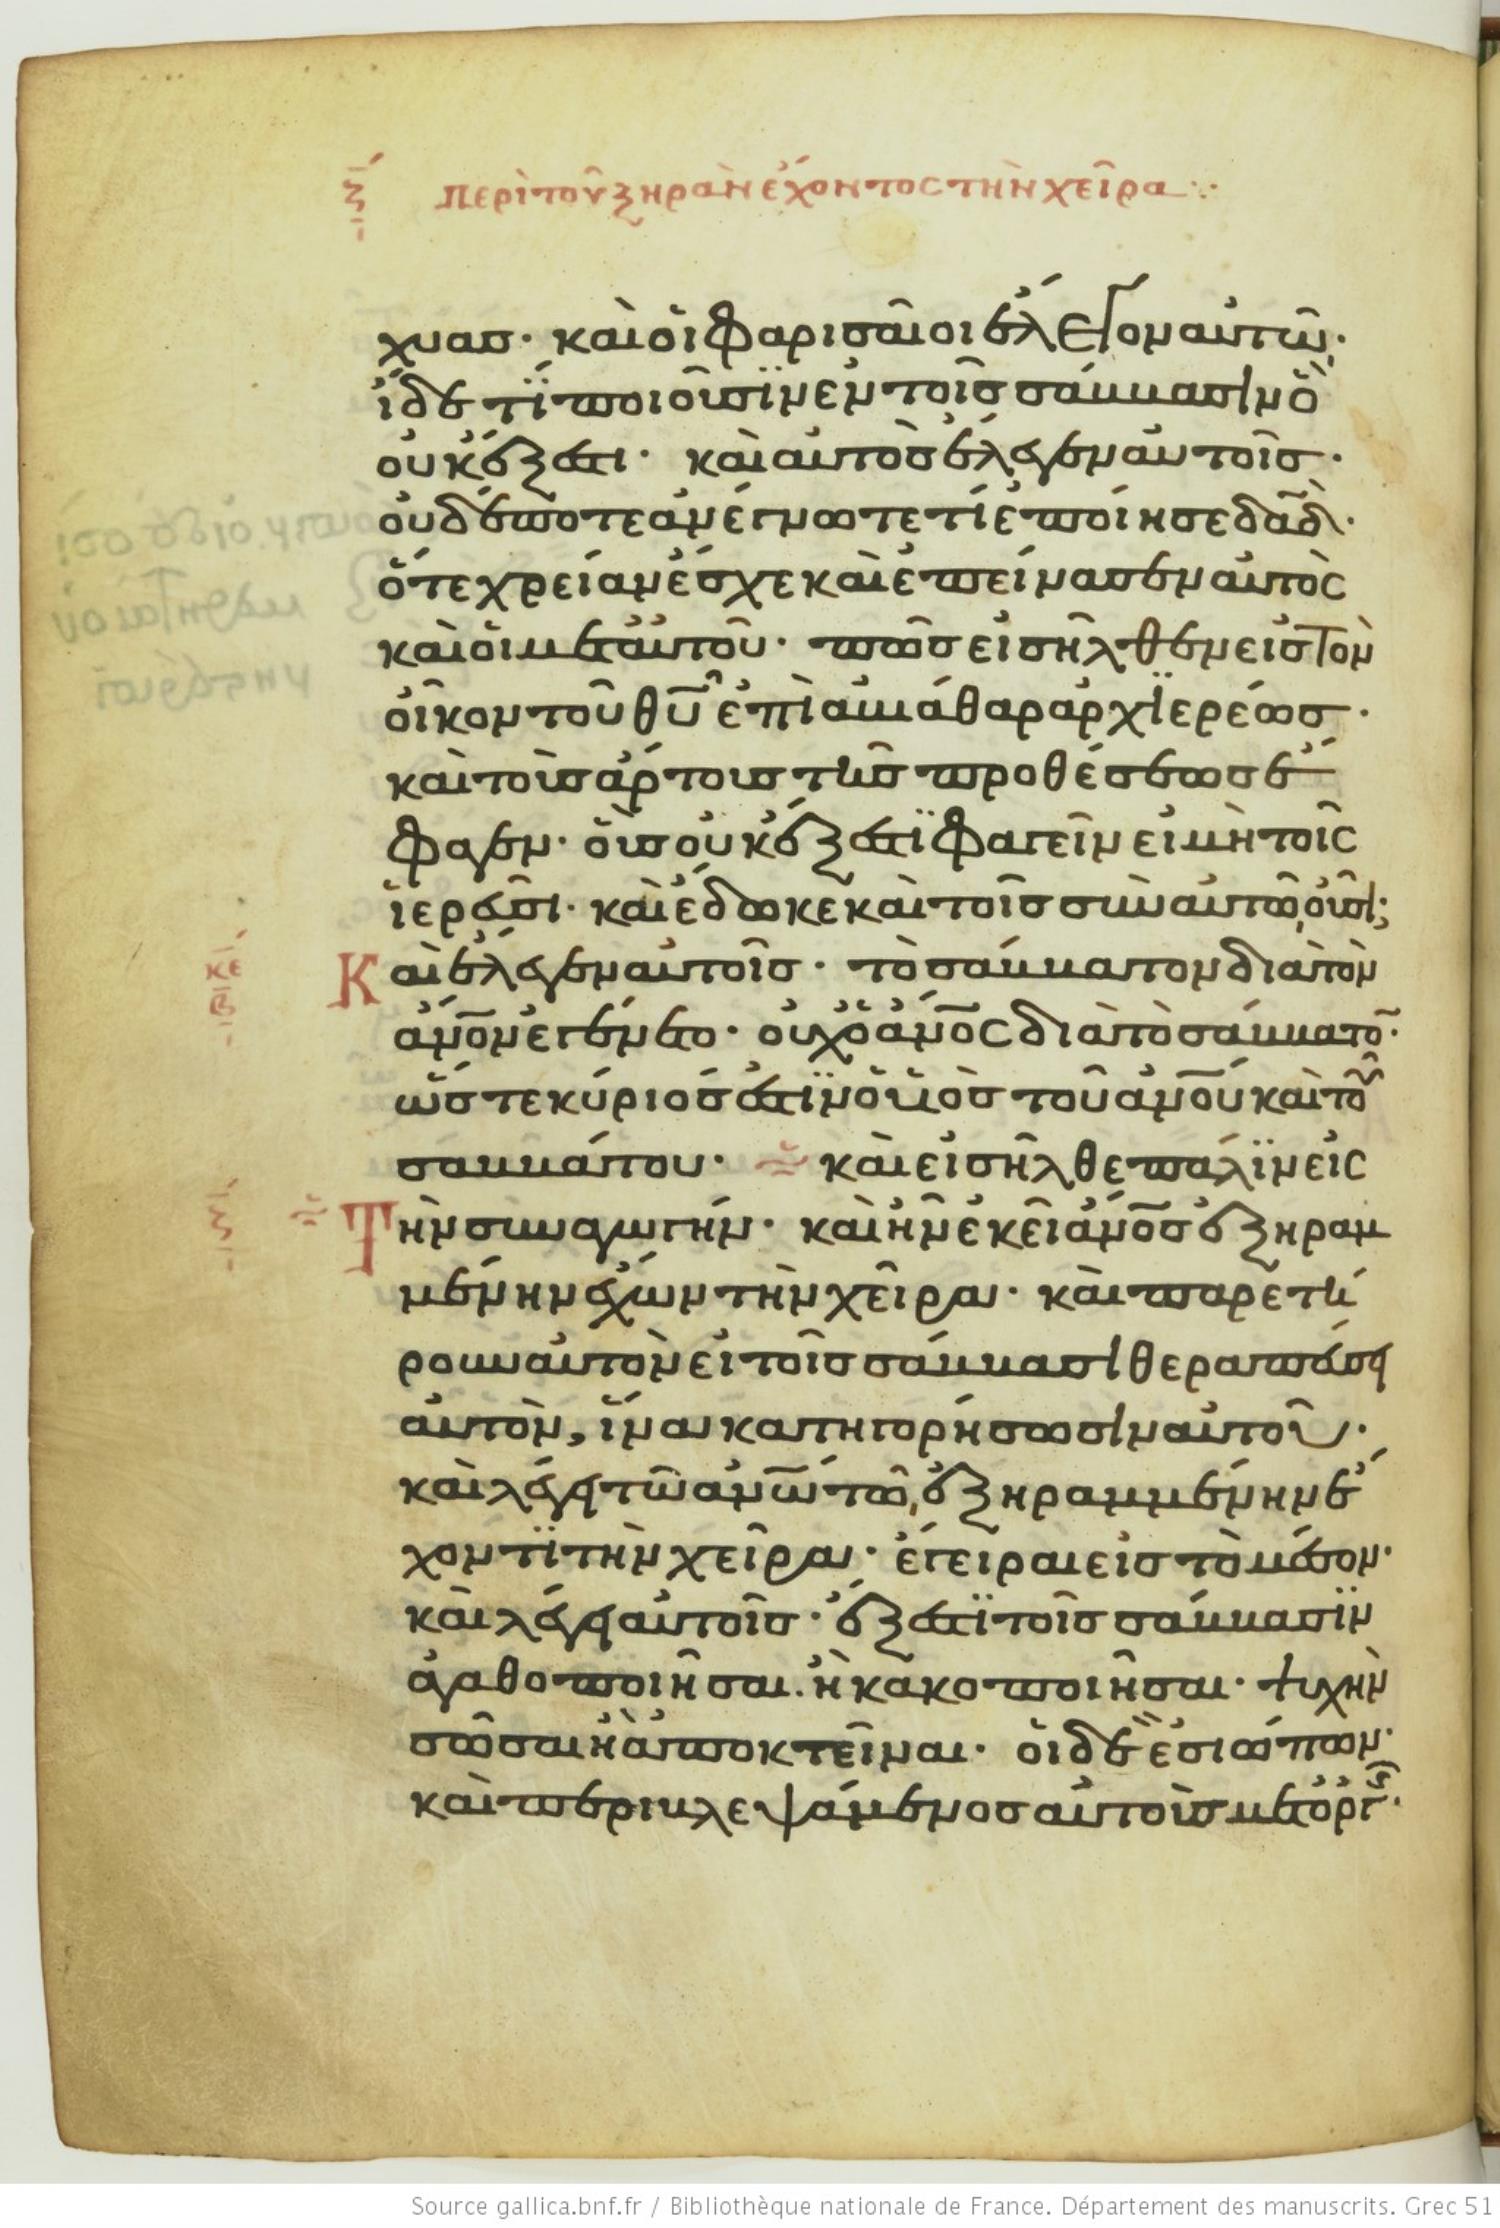 ξ περὶ τοῦ ξηρὰν ἔχοντος τὴν χεῖρα
χυας· καὶ οἱ φαρισαῖοι ἔλεγον αὐτῶ·
ἴδε τί ποιοῦσϊν ἐν τοῖς σάββασιν ὃ
οὐκ ἔξεστι· καὶ αὐτὸς ἔλεγεν αὐτοῖς·
οὐδέποτε ἀνέγνωτε τί ἐποίησε δᾱδ·
ὅτε χρείαν ἔσχε καὶ ἐπείνασεν αὐτὸς
καὶ οἱ μετ' αὐτοῦ· πῶς εἰσῆλθεν εἰς τὸν
οἶκον τοῦ θῡ ἐπὶ ἀβιάθαρ ἀρχϊερέως·
καὶ τοὺς ἄρτους τῆς προθέσεως ἔ
φαγεν· οὓς οὐκ ἔξεστϊ φαγεῖν εἰ μὴ τοῖς
ἱερεῦσι· καὶ ἔδωκε καὶ τοῖς σὺν αὐτῶ οὖσι;
κε β Καὶ ἔλεγεν αὐτοῖς· τὸ σάββατον διὰ τὸν
ἄν̄ον ἐγένετο· οὐχ ὁ ἄν̄ος διὰ τὸ σάββατο̄·
ὥστε κύριός ἐστϊν ὁ υἱὸς τοῦ ἀν̄ου καὶ τοῦ
σαββάτου· καὶ εἰσῆλθε πάλϊν εἰς
Τὴν συναγωγήν· καὶ ἦν ἐκεῖ ἄν̄ος ἐξηραμ
μένην ἔχων τὴν χεῖρα· καὶ παρετή
ρουν αὐτὸν εἰ τοῖς σάββασι θεραπεύσει
αὐτὸν, ἵνα κατηγορήσωσιν αὐτοῦ·
καὶ λέγει τῶ ἀν̄ω τῶ ἐξηραμμένην ἔ
χοντϊ τὴν χεῖρα· ἔγειραι εἰς τὸ μέσον·
καὶ λέγει αὐτοῖς· ἔξεστϊ τοῖς σάββασϊν
ἀγαθοποιῆσαι. ἢ κακοποιῆσαι· ψυχὴν
σῶσαι ἢ ἀποκτεῖναι· οἱ δὲ ἐσιώπων·
καὶ περιβλεψάμενος αὐτοὺς μετ' ὀργῆς·